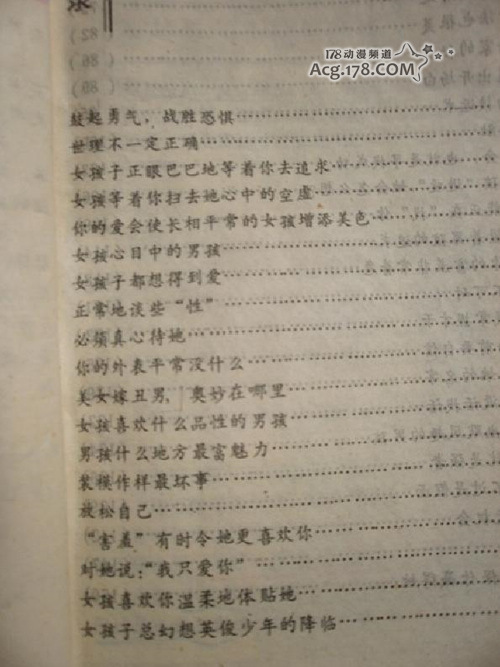 录
178动漫频道
Acg.178.COM
(82)
(86)
(89)
鼓起勇气，战胜恐惧…………
世理不一定正确…………
女孩子正眼巴巴地等着你去追求…………
女孩等着你扫去她心中的空虚…………
你的爱会使长相平常的女孩增添美色…………
女孩心目中的男孩…………
女孩子都想得到爱…………
正常地谈些“性”…………
必须真心待她…………
你的外表平常没什么…………
美女嫁丑男，奥妙在哪里…………
女孩喜欢什么品性的男孩…………
男孩什么地方最富魅力…………
装模作样最坏事…………
放松自己…………
“害羞”有时令她更喜欢你…………
对她说：“我只爱你”…………
女孩喜欢你温柔地体贴她…………
女孩子总幻想英俊少年的降临…………